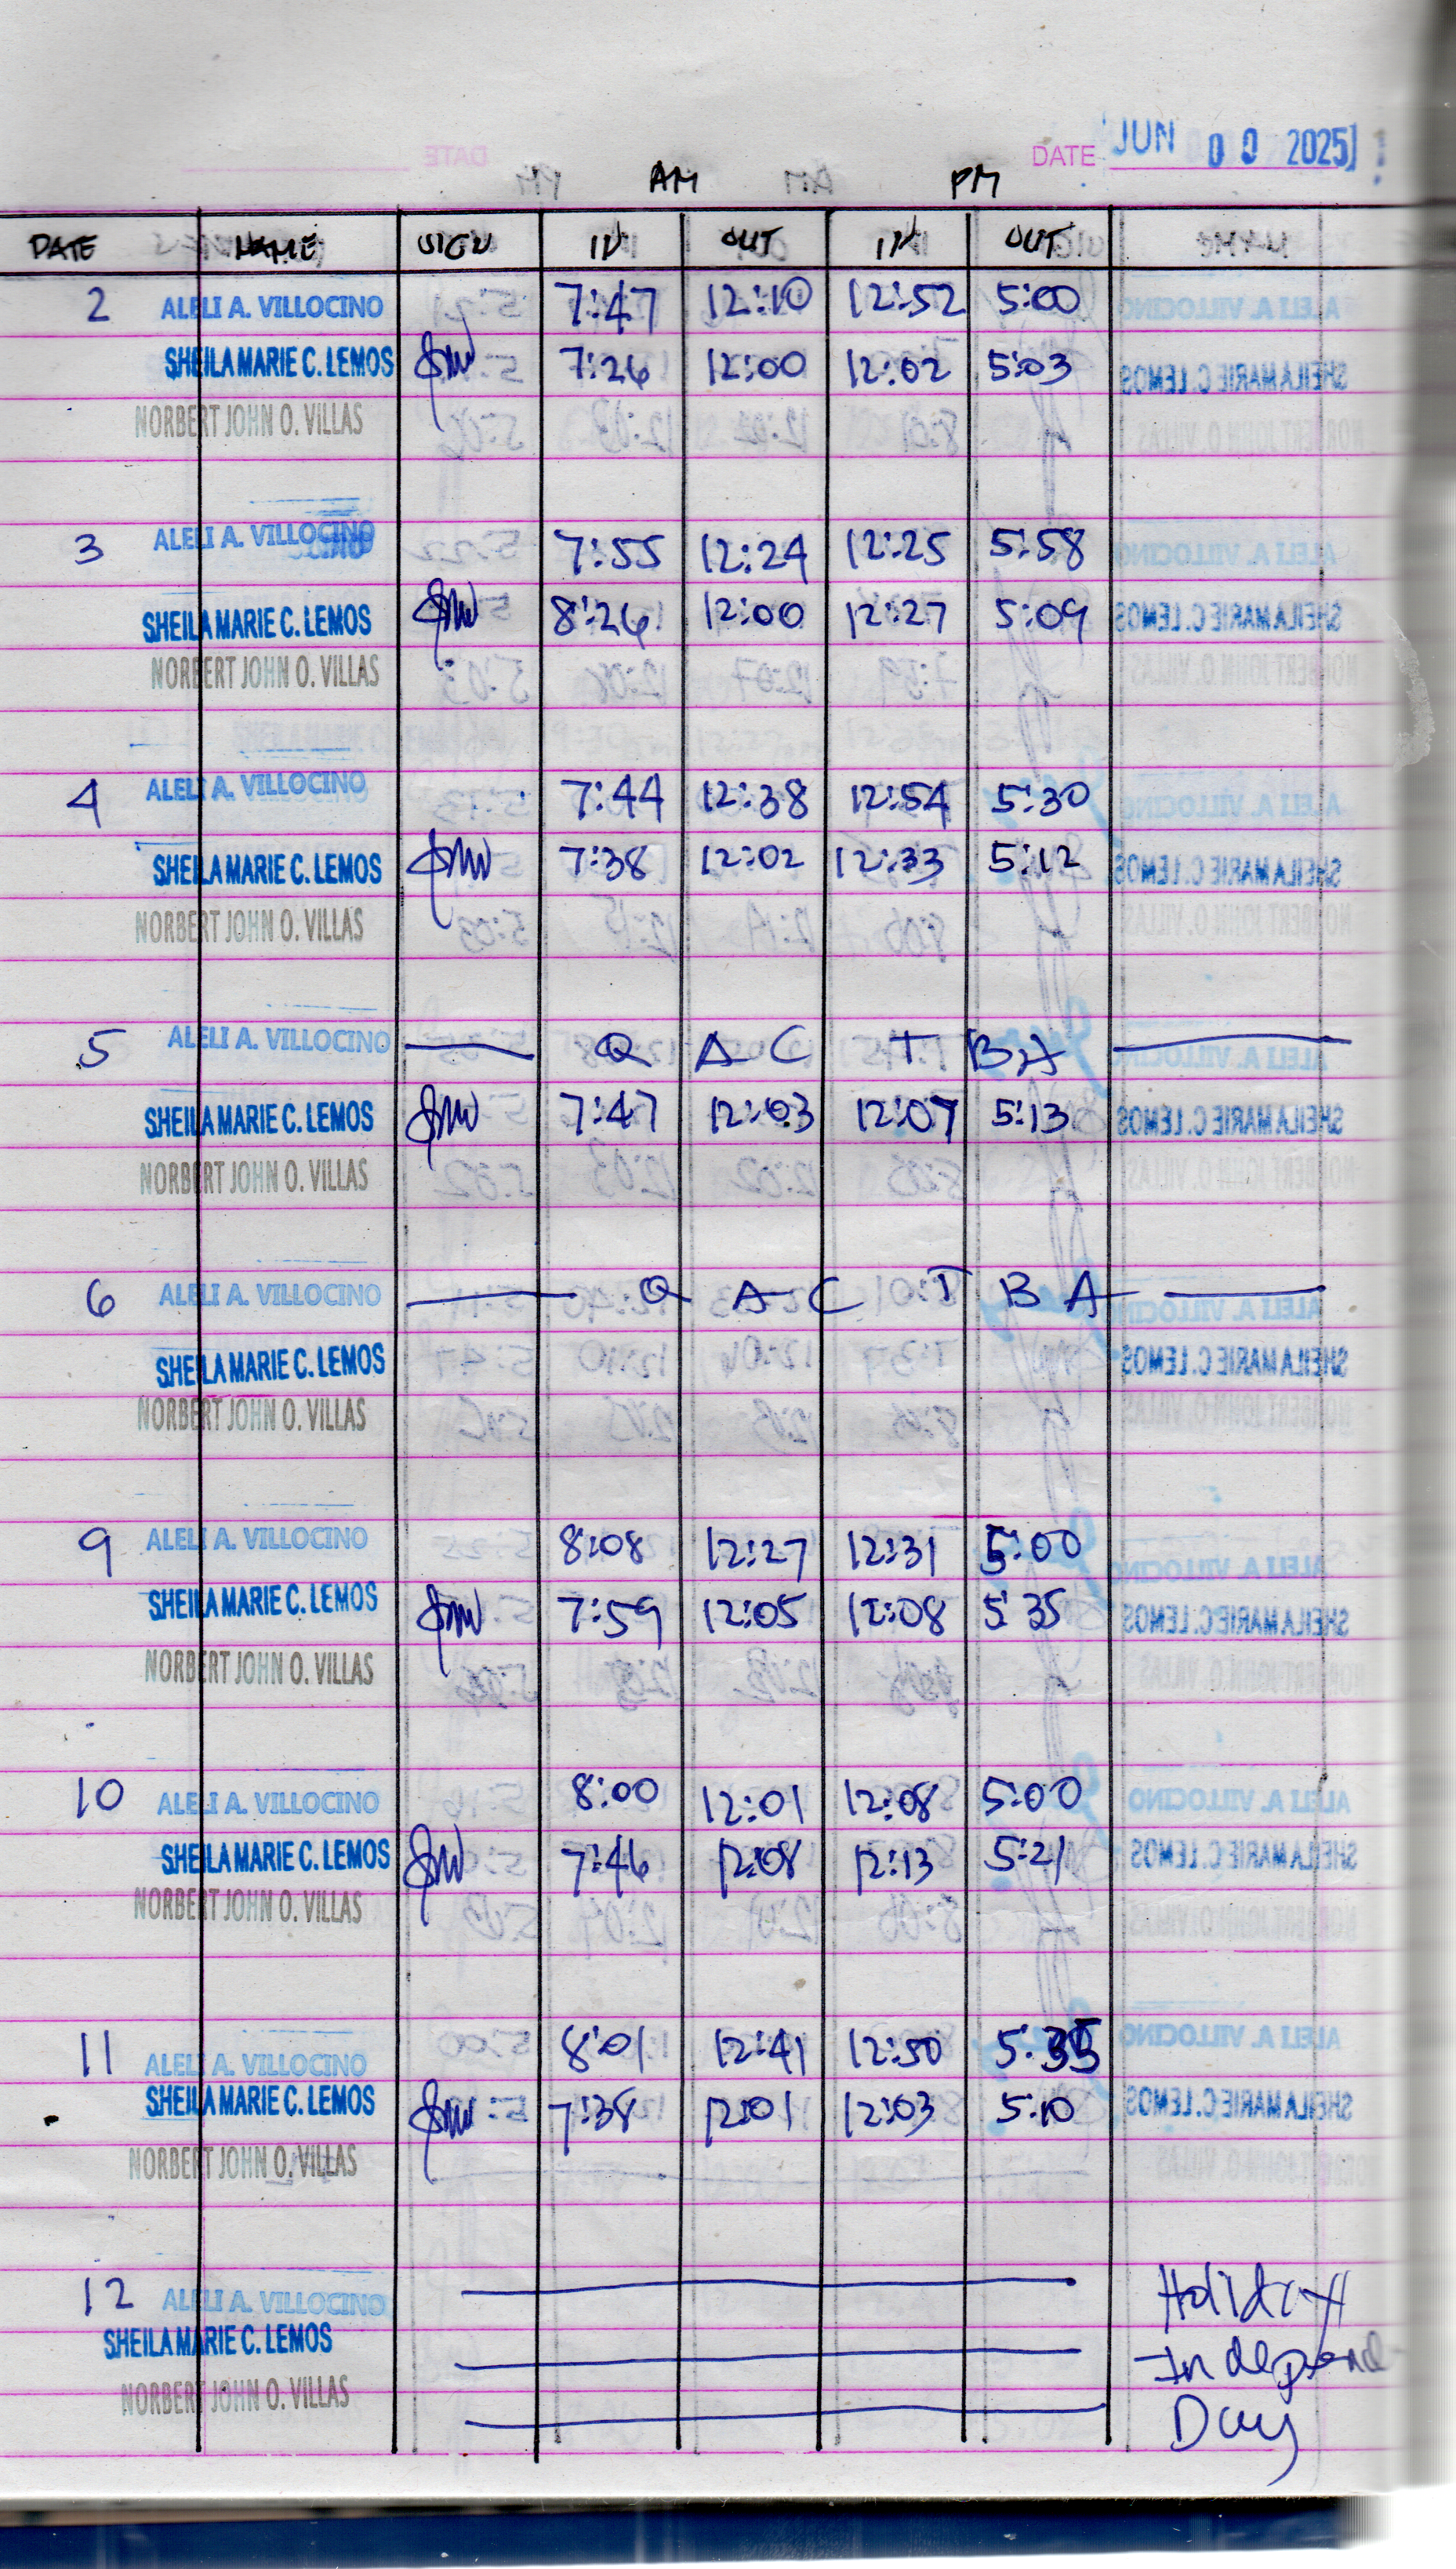 DATE JUN 00 2025
AM PM
DATE NAME SIGN IN OUT IN OUT
2 ALELI A. VILLOCINO 7:47 12:10 12:52 5:00
SHEILA MARIE C. LEMOS 7:26 12:00 12:02 5:03
NORBERT JOHN O. VILLAS
3 ALELI A. VILLOCINO 7:55 12:24 12:25 5:58
SHEILA MARIE C. LEMOS 8:26 12:00 12:27 5:09
NORBERT JOHN O. VILLAS
4 ALELI A. VILLOCINO 7:44 12:38 12:54 5:30
SHEILA MARIE C. LEMOS 7:38 12:02 12:33 5:12
NORBERT JOHN O. VILLAS
5 ALELI A. VILLOCINO Q A C T B A
SHEILA MARIE C. LEMOS 7:47 12:03 12:07 5:13
NORBERT JOHN O. VILLAS
6 ALELI A. VILLOCINO Q A C T B A
SHEILA MARIE C. LEMOS
NORBERT JOHN O. VILLAS
9 ALELI A. VILLOCINO 8:08 12:27 12:31 5:00
SHEILA MARIE C. LEMOS 7:59 12:05 12:08 5:35
NORBERT JOHN O. VILLAS
10 ALELI A. VILLOCINO 8:00 12:01 12:08 5:00
SHEILA MARIE C. LEMOS 7:46 12:08 12:13 5:21
NORBERT JOHN O. VILLAS
11 ALELI A. VILLOCINO 8:01 12:41 12:50 5:35
SHEILA MARIE C. LEMOS 7:38 12:01 12:03 5:10
NORBERT JOHN O. VILLAS
12 ALELI A. VILLOCINO Holiday
SHEILA MARIE C. LEMOS Independ
NORBERT JOHN O. VILLAS Day